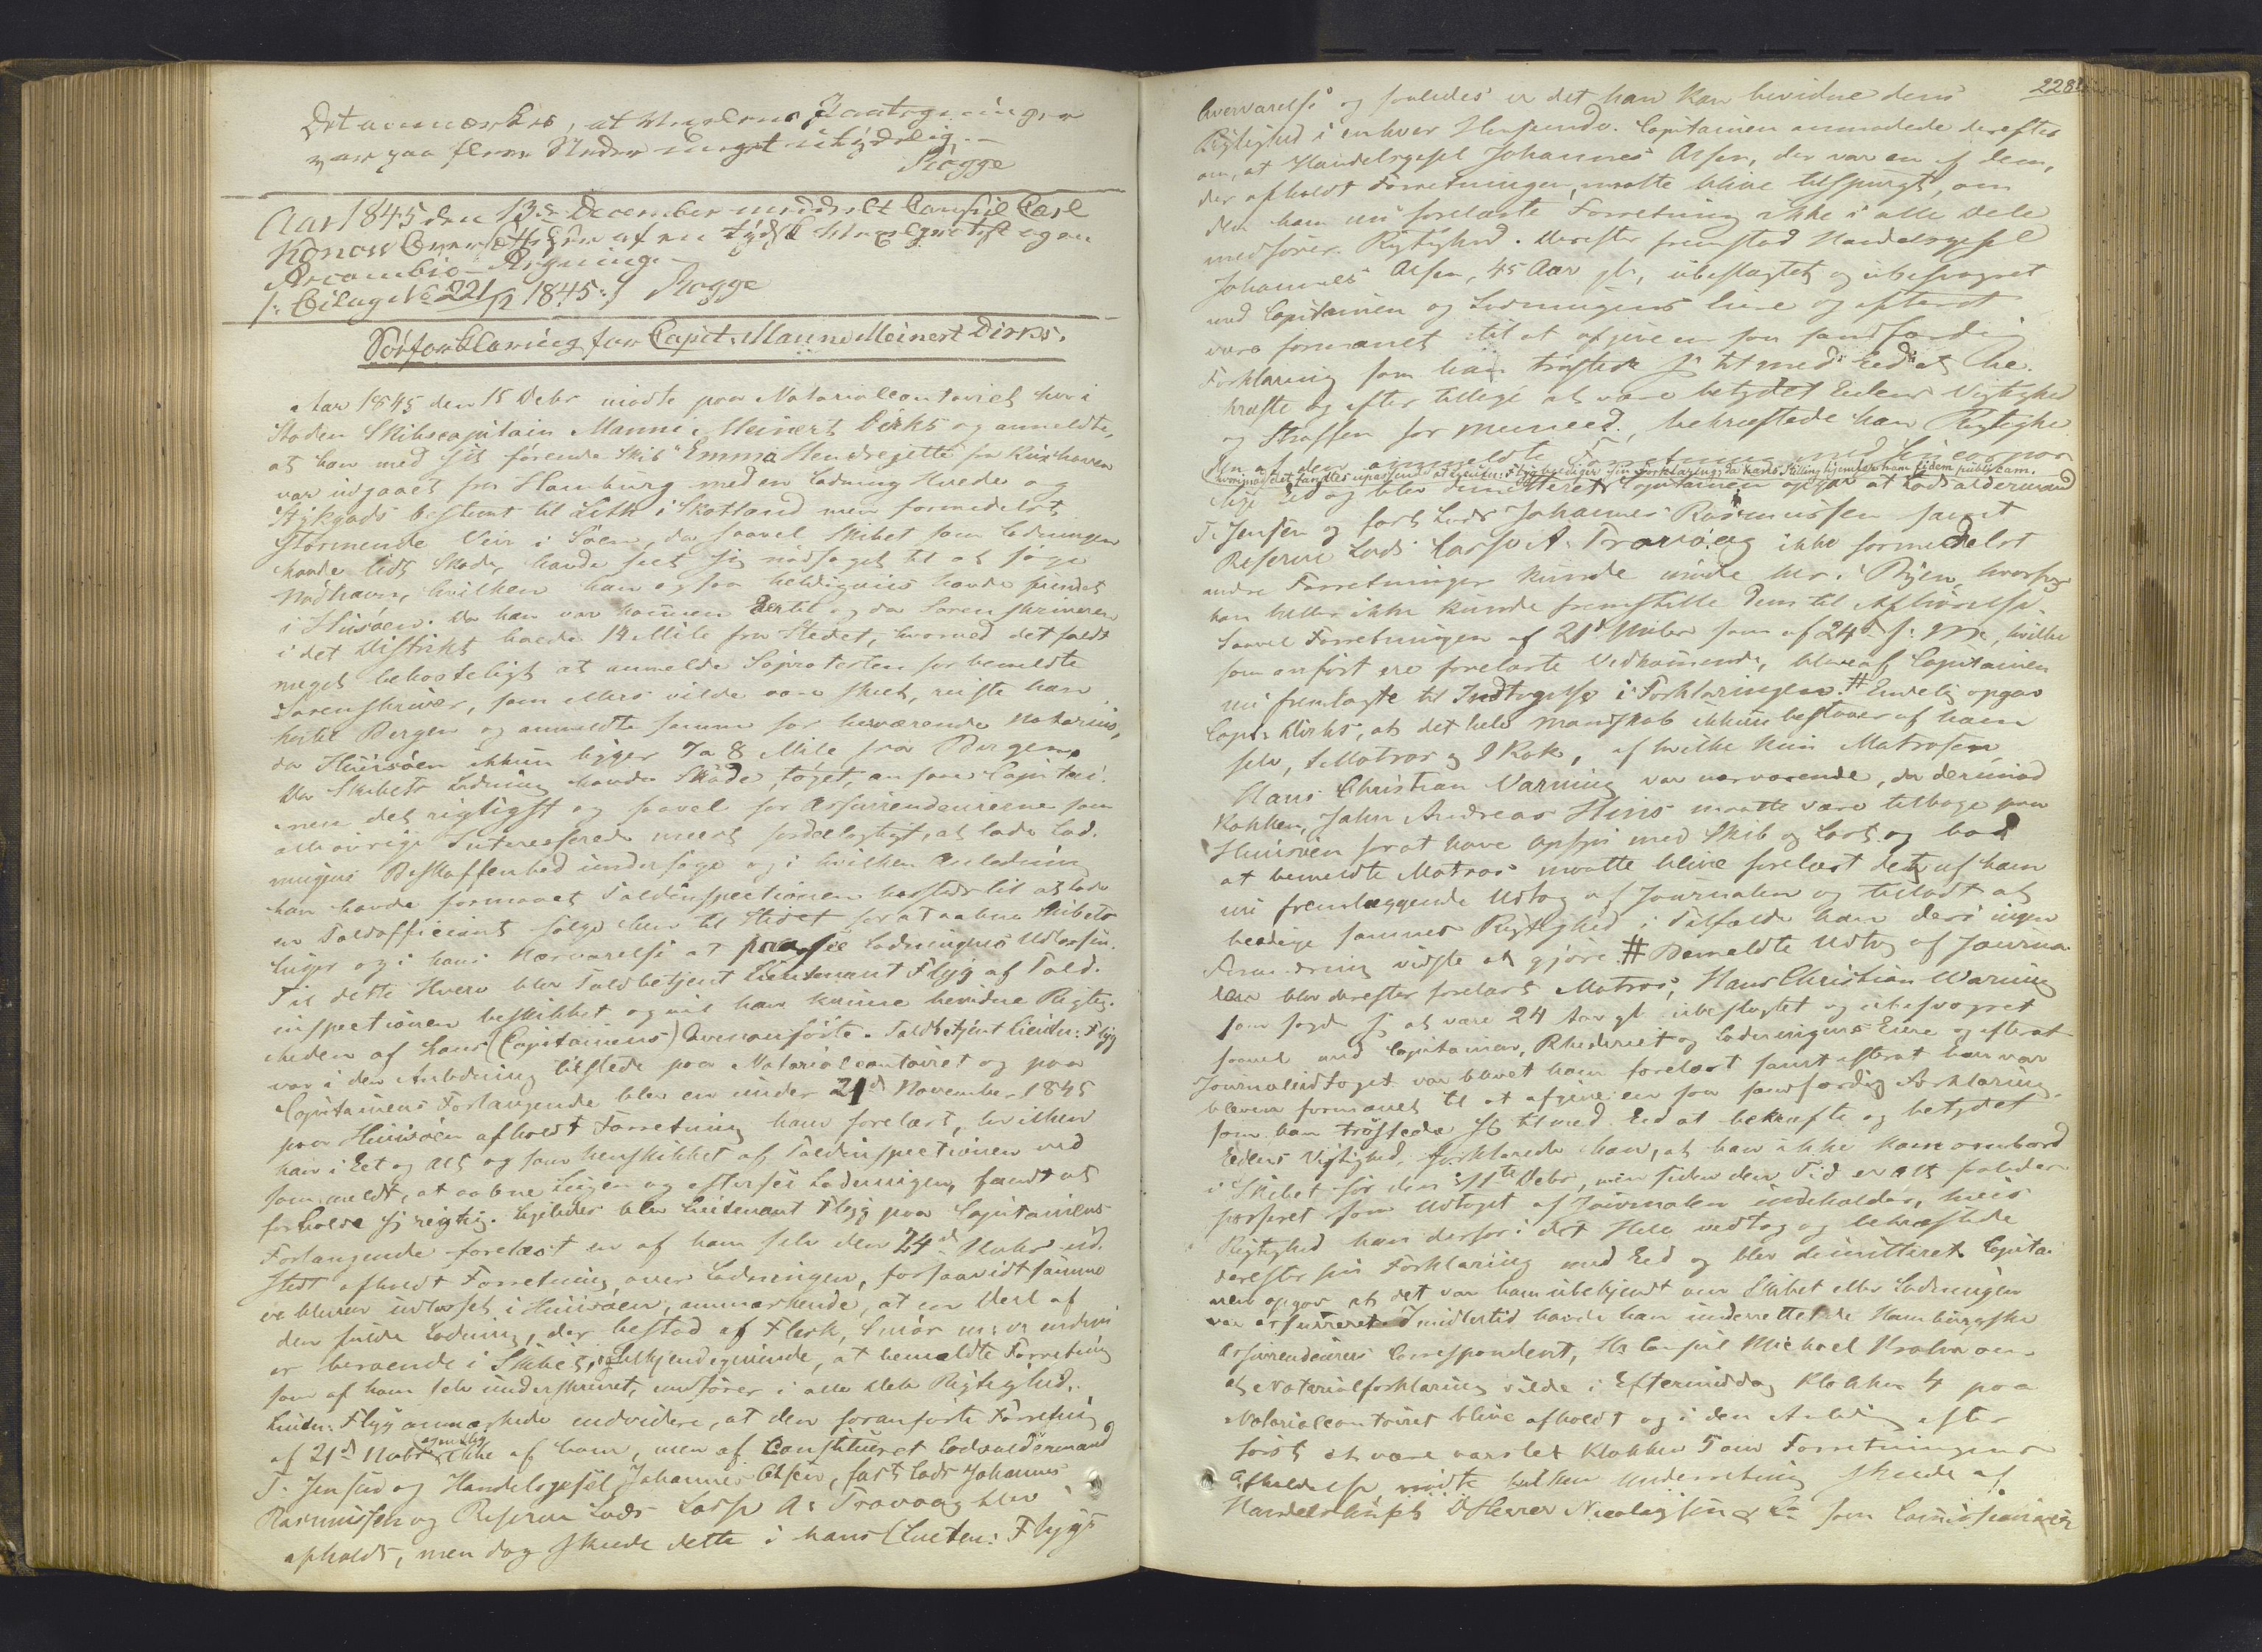 Det anmærkes, at Vexlens Paategninger
var paa flere Steder meget utydelig.-
Rogge
Aar 1845 den 13de December meddelt Consul Carl
Konow Oversættelse af en tydsk Vexelprotest og en
Recambio-Regning.-
/: Bilag No 221/2 1845:/ Rogge
Söforklaring for Capit. Manne Meinert Dirks.
Aar 1845 den 15 Debr mødte paa Notarialcontoiret her i
Staden Skibscapitain Manne Meinert Dirks og anmeldte,
at han med sit førende Skib "Emma Hendrejette" fra Kuxhaven
var udgaaet fra Hamburg med en Ladning Hvede og
Stykgods bestemt til Leith i Skotland men formedelst
stormende Veir i Søen, da saavel Skibet som Ladningen
havde lidt Skade, havde seet sig nødsaget til at søge
Nødhavn, hvilken han ogsaa heldigviis havde fundet
i Huusøen. Da han var kommen dertil og da Sorenskriveren
i det District boede 14 Mile fra Stedet, hvorved det faldt
meget bekosteligt at anmelde Søprotesten for bemeldte
Sorenskriver, som ellers vilde være skeet, reiste han
hertil Bergen og anmeldte samme for herværende Notarius,
da Huusøen ikkun ligger 7 a 8 Mile fra Bergen.
Da Skibets Ladning havde Skade taget, ansaae Capitai-
nen det rigtigst og saavel for Assurandeurerne som
alle øvrige Interesserede meest fordeelagtigt, at lade Lad-
ningens Beskaffenhed undersøge og i hvilken Anledning
han havde formaaet Toldinspectionen hersteds til at lade
en Toldofficiant følge her til Stedet for at aabne Skibets
Luger og i hans Nærværelse at paasee Ladningens Udlosning.
Til dette Hverv blev Toldbetjent Lieutenant Flyg af Told-
inspectionen beskikket og vil han kunne bevidne Rigtig-
heden af hans (Capitainens) Ovenanførte. Toldbetjent Lieuten: Flyg
var i den Anledning tilstede paa Notarialcontoiret og paa
Capitainens Forlangende blev en under 21d November 1845
paa Huusøen afholdt Forretning ham forelæst, hvilken
han i Eet og Alt og som henskikket af Toldinspectionen ved
som meldt, at aabne Lugen og eftersee Ladningen, fandt at
forholde sig rigtig. Ligeledes blev Lieutenant Flyg paa Capitainens
Forlangende forelæst en af ham selv den 24d Novbr sid-
stl. afholdt Forretning over Ladningen, forsaavidt samme
er bleven udlosset i Huusøen, anmærkende, at en Deel af
den fulde Ladning, der bestod af Flesk, Smør m: v: endnu
er beroende i Skibet, og tilkjendegivende, at bemeldte Forretning
som af ham selv underskrevet, medfører i alle Dele Rigtighed.
Lieuten: Flyg anmærkede endvidere, at den foranførte Forretning
af 21d Novbr egentlig ikke af ham, men af Constitueret Lodsoldermand
T. Jensen og Handelsgesel Johannes Olsen, fast Lods Johannes
Rasmussen og Reserve Lods Lasse A: Travaag blev
afholdt, men dog skeede dette i hans (Lieuten: Flygs
228.
Overværelse og saaledes er det han kan bevidne dens
Rigtighed i enhver Henseende. Capitainen anmodede derefter
om, at Handelsgesel Johannes Olsen, der var en af dem,
der afholdt Forretningen, maatte blive tilspurgt, om
den ham nu forelæste Forretning ikke i alle Dele
medfører Rigtighed. Derefter fremstod Handelsgesel
Johannes Olsen, 45 Aar gl., ubeslægtet og ubesvogret
med Capitainen og Ladningens Eiere og efterat
være formanet til at afgive en saa sandfærdig
Forklaring som han trøstede sig til med Eed at be-
kræfte og efter tillige at være betydet Eedens Vigtighed
og Straffen for Meneed, bekræftede han Rigtighe-
den af den anmeldte Forretning med sin corpor-
(hvorimod det fandtes upassende at Lieuten: Flyg beediger sin Forklaring, da hans Stilling hjemler ham fidem publicam.
lige Eed og blev dimitteret. Capitainen opgav at Lodsoldermand
T. Jensen og fast Lods Johannes Rasmussen samt
Reserve Lods Lasse A. Travaag ikke formedelst
andre Forretninger kunde møde her i Byen, hvorfor
han heller ikke kunde fremstille dem til Afhørelse.
Saavel Forretningen af 21d Novber som af 24d s: M:, hvilke
som anført ere forelæste Vedkommende, bleve af Capitainen
nu fremlagte til Indtagelse i Forklaringen. # Endelig opgav
Capt: Dirks, at det hele Mandskab ikkun bestaaer af ham
selv, 1 Matros og 1 Kok, af hvilke kun Matrosen
Hans Christian Warning var nærværende, da derimod
Kokken, John Andreas Hins maatte være tilbage paa
Huusøen for at have Opsyn med Skib og Last, og bad
at bemeldte Matros maatte blive forelæst det af ham
nu fremlæggende Udtog af Journalen og tilladt at
beedige sammes Rigtighed i Tilfælde han deri ingen
Forandring vidste at gjøre. # Bemeldte Udtog af Journa-
len blev derefter forelæst Matros, Hans Christian Warning
som sagde sig at være 24 Aar gl. ubeslægtet og ubesvogret
saavel med Capitainen, Rhederiet og Ladningens Eiere og efterat
Journaludtoget var blevet ham forelæst samt efterat han var
bleven formanet til at afgive en saa sandfærdig Forklaring,
som han trøstede sig til med Eed at bekræfte og betydet
Eedens Vigtighed, forklarede han, at han ikke kom ombord
i Skibet før den 11te Debr, men siden den Tid er alt saaledes
passeret som Udtoget af Journalen indeholder, hvis
Rigtighed han derfor i det Hele vedtog og bekræftede
derefter sin Forklaring med Eed og blev dimitteret. Capitai-
nen opgav at det var ham ubekjendt om Skibet eller Ladningen
var assurreret. Imidlertid havde han underrettet de Hamburgske
Assurandeurers Correspondent, Hr Consul Michael Krohn om
at Notarialforklaring vilde i Eftermiddag Klokken 4 paa
Notarialcontoiret blive afholdt og i den Anledning efter
først at være varslet Klokken 5 om Forretningens
Afholdelse mødte hvilken Underretning skeede af
Handelshuset DHerrer Nicolaysen & Co som Commissionair